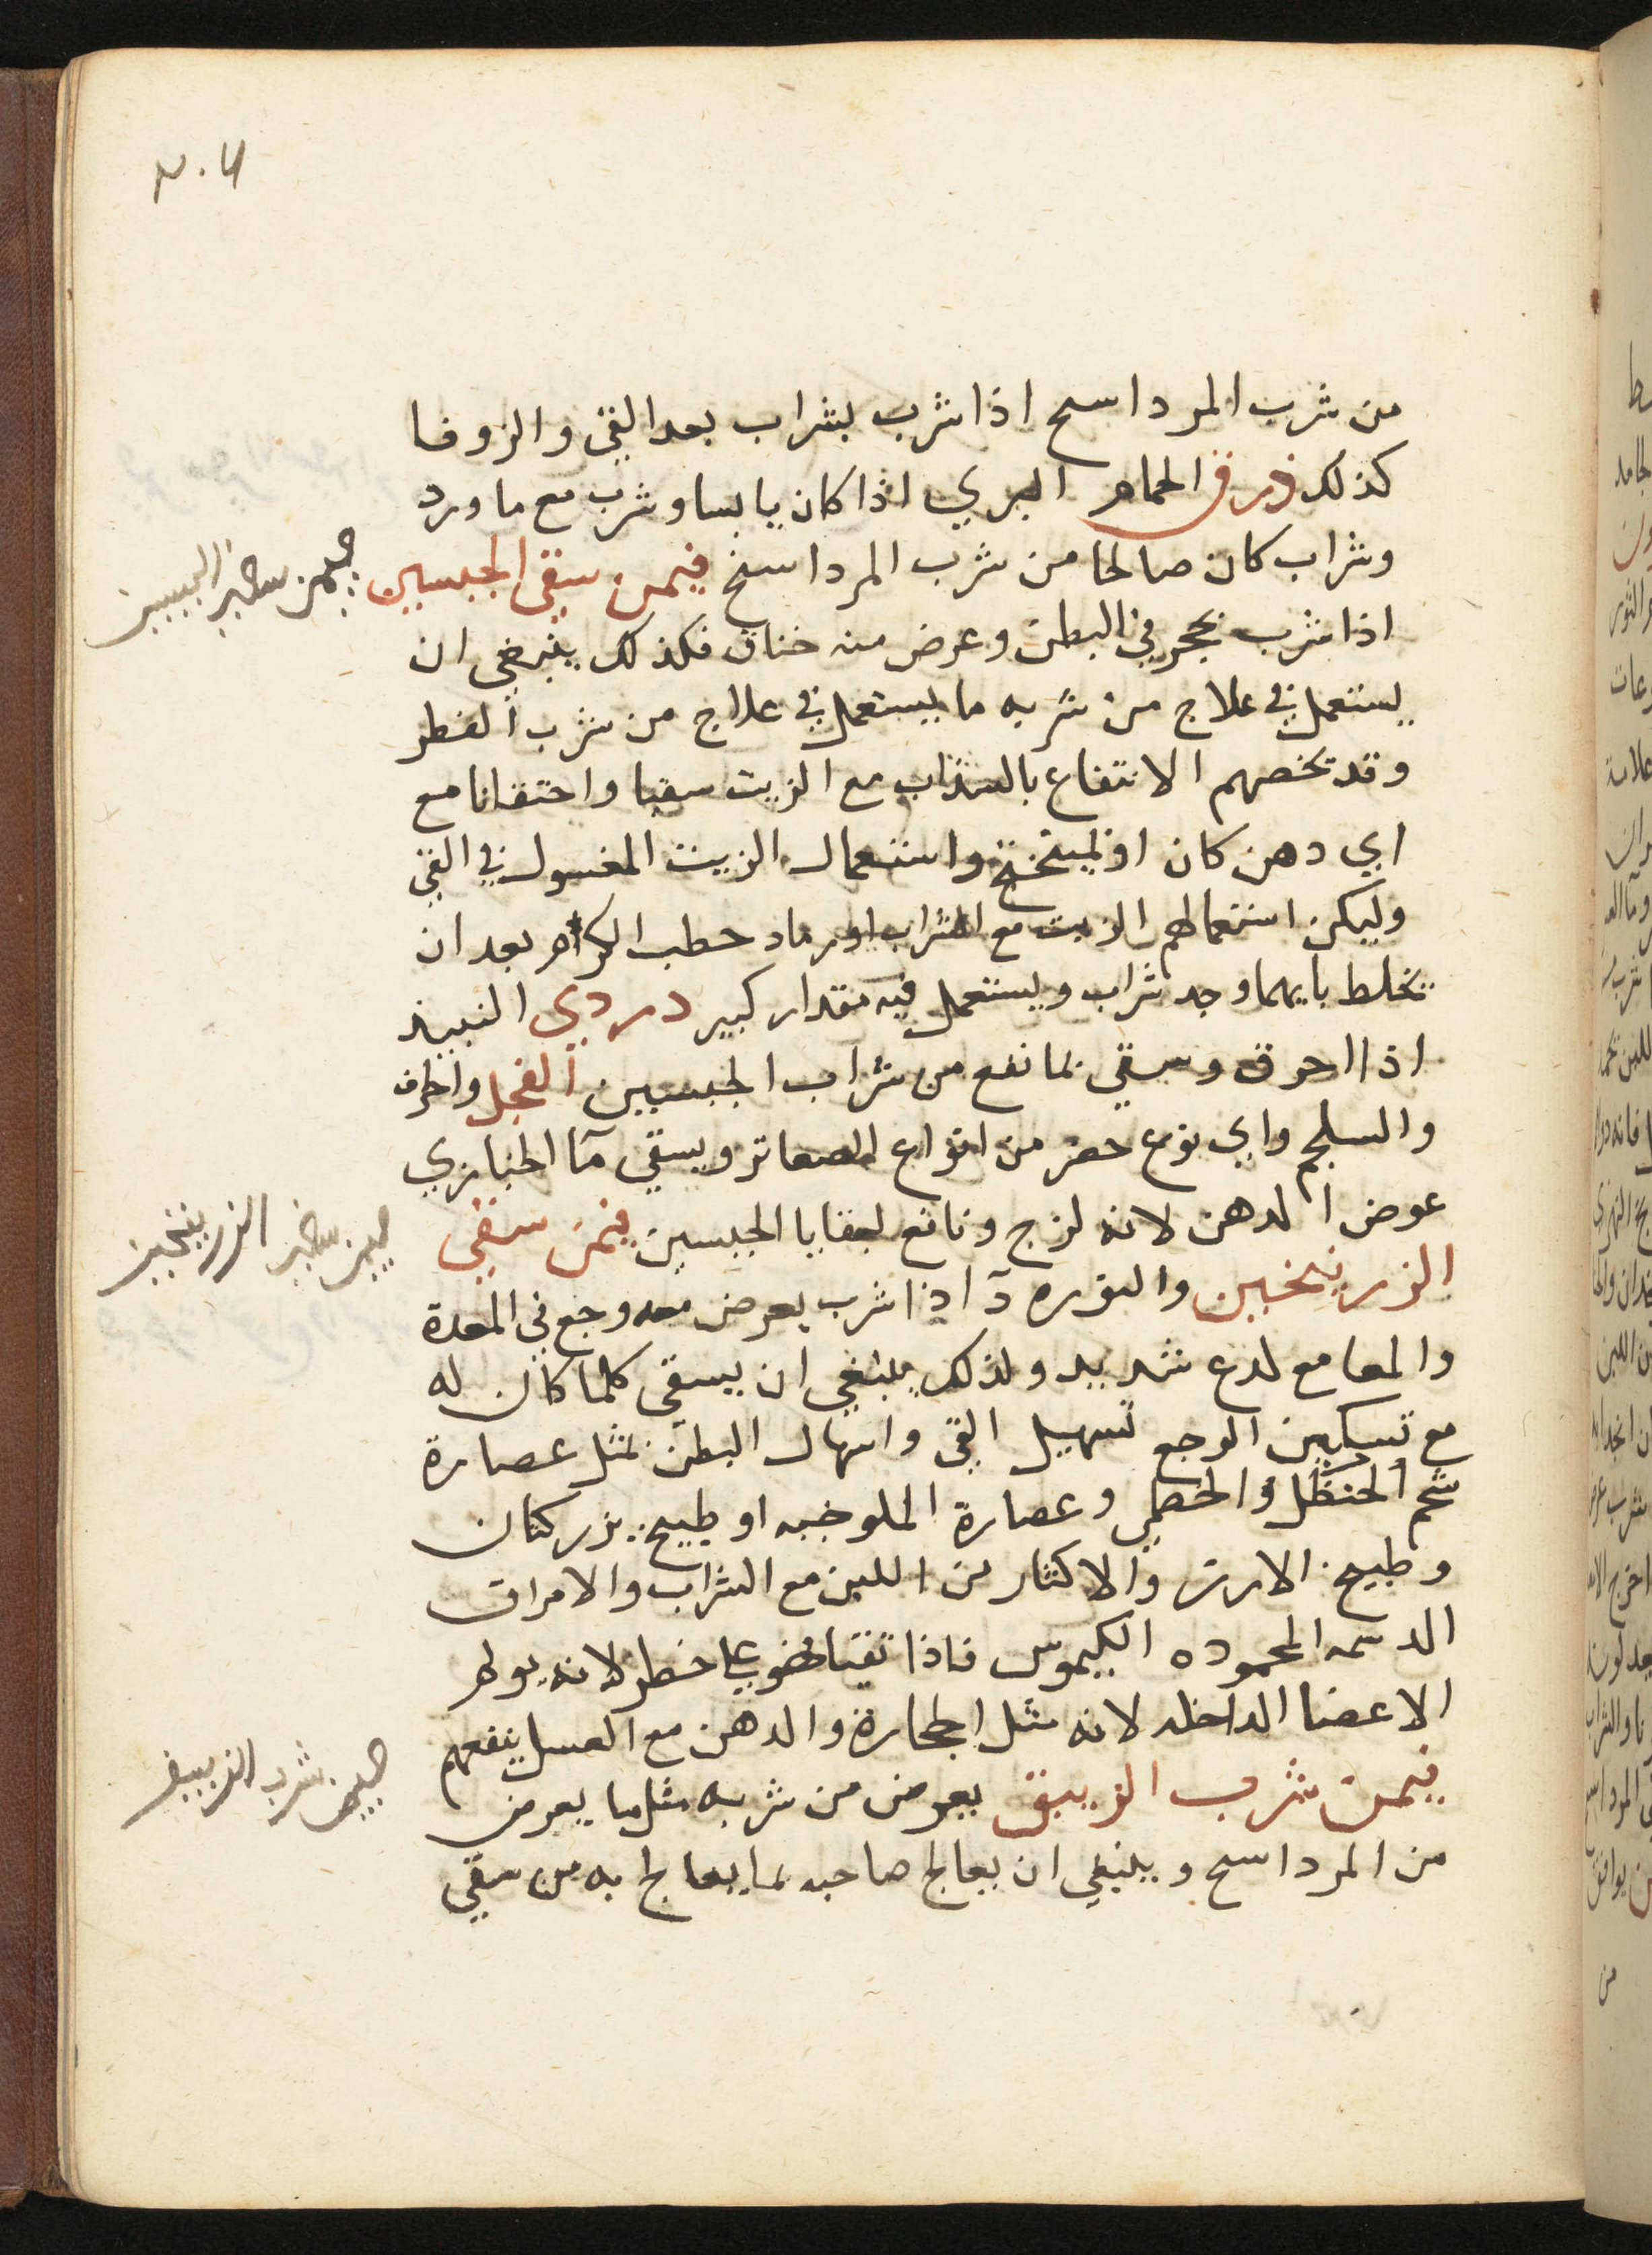 من شرب المرداسج اذا شرب بشراب بعد القي والزوفا
كذلك ذرق الحمام البري اذا كان يابسا وشرب مع ماورد
وشراب كان صالحا من شرب المرداسنج فيمن سقي الجبسين
اذا شرب تحجر في البطن وعرض منه خناق فكذلك ينبغي ان
يستعمل في علاج من شربه ما يستعمل في علاج من شرب الفطر
وقد يخصهم الانتفاع بالسذاب مع الزيت سقيا واحتقانا مع
اي دهن كان او لميبختج واستعمال الزيت المغسول في القي
وليكن استعمالهم الزيت مع الشراب او رماد حطب الكرم بعد ان
يخلط بايهما وجد شراب ويستعمل فيه مقدار كبير دردي النبيذ
اذا احرق وسقي بما نفع من شراب الجبسين الفجل واطراف
والسلجم واي نوع حضر من انواع الصعاتر ويسقي مآ الخبازي
عوض الدهن لانه لزج ونافع لبقايا الجبسين فيمن سقي
الزرنيخين والنوره آذا شرب يعرض معه وجع في المعدة
والمعا مع لدع شديد ولذلك ينبغي ان يسقي كلما كان له
مع تسكين الوجع تسهيل القي واسهال البطن بمثل عصارة
شحم الحنظل والخطمي وعصارة الملوخيه او طبيخ بزر كتان
وطبيخ الارز والاكثار من اللبن مع الشراب والامراق
الدسمه المحموده الكيموس فاذا تقيا فهو علي خطر لانه يولم
الاعضا الداخله لانه مثل الحجارة والدهن مع العسل ينفعهم
فيمن شرب الزيبق يعرض من شربه مثل ما يعرض
من المرداسج وينبغي ان يعالج صاحبه بما يعالج به من سقي
فيمن سقي الجبسين
فيمن سقي الزرنيخين
فيمن شرب الزيبق